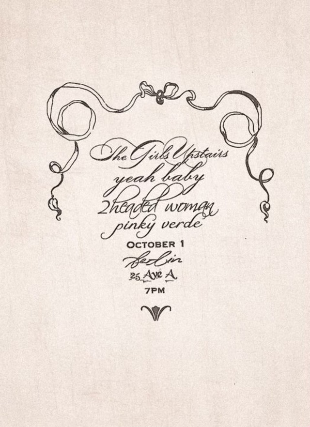 The Girls Upstairs
yeah baby
2headed woman
pinky verde
OCTOBER 1
Berlin
25 Ave A
7PM